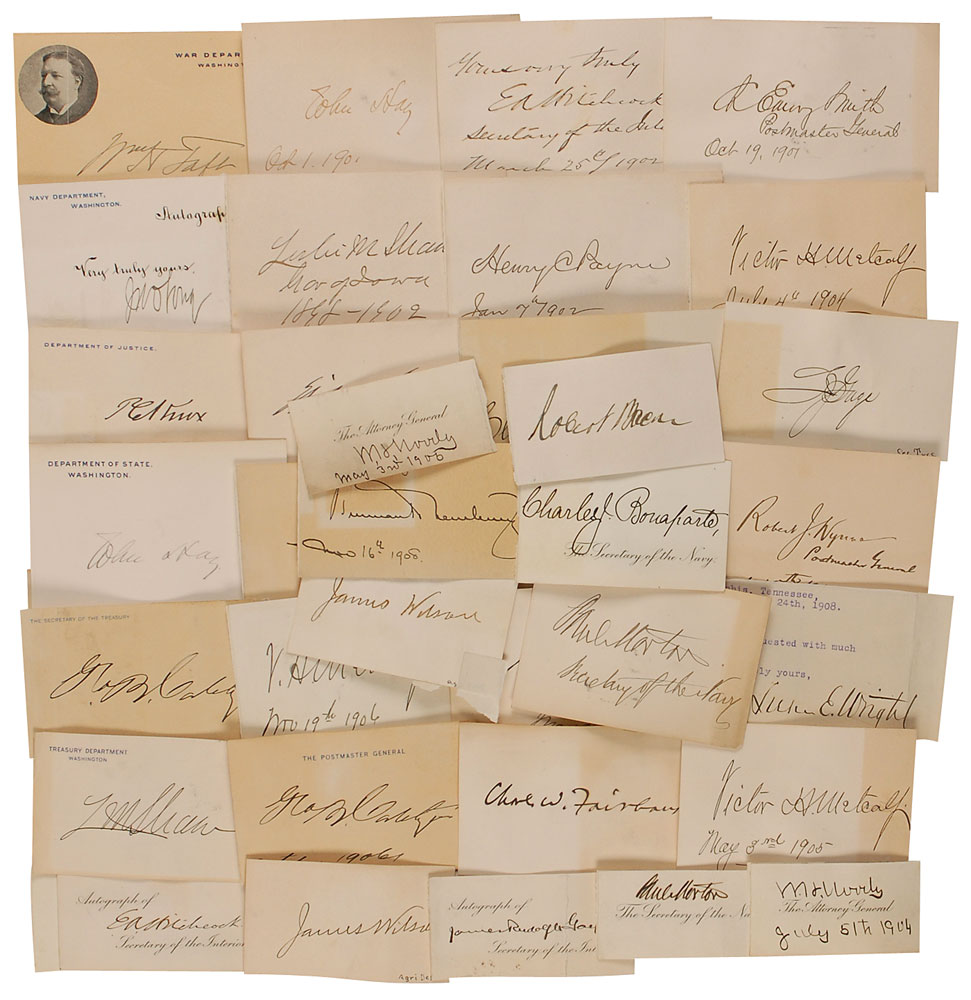 WAR DEPAR
WASHINGT
Wm H Taft
John Hay
Oct 1. 1901
Yours very truly
EA Hitchcock
Secretary of the Inte
March 25th/1902
Ch Emory Smith
Postmaster General
Oct 19, 1901
NAVY DEPARTMENT,
WASHINGTON.
Autograp
Very truly yours,
J D Long
Leslie M Shaw
Gov of Iowa
1898-1902
Henry C Payne
Jan 7th 1902
Victor H Metcalf
July 4th 1904
DEPARTMENT OF JUSTICE.
P C Knox
The Attorney General
W H Moody
May 3rd 1906
Robert Bacon
L J Gage
DEPARTMENT OF STATE,
WASHINGTON.
John Hay
Truman H Newberry
Nov 16th 1905.
Charles J. Bonaparte,
The Secretary of the Navy.
Robert J. Wynne
Postmaster General
THE SECRETARY OF THE TREASURY
Geo. B. Cortelyo
V. H. Met
Nov 19th 1906
James Wilson
Paul Morton
Secretary of the Navy
his, Tennessee,
24th, 1908.
uested with much
ly yours,
Luke E. Wright
TREASURY DEPARTMENT
WASHINGTON
L M Shaw
THE POSTMASTER GENERAL
Geo. B. Cortelyo
Chas. W. Fairbank
Victor H Metcalf
May 3rd 1905
Autograph of
EA Hitchcock
Secretary of the Interior
James Wilso
Agri De
Autograph of
James Rudolph Gar
Secretary of the Int
Paul Morton
The Secretary of the Na
W H Moody
The Attorney General
July 5th 1904